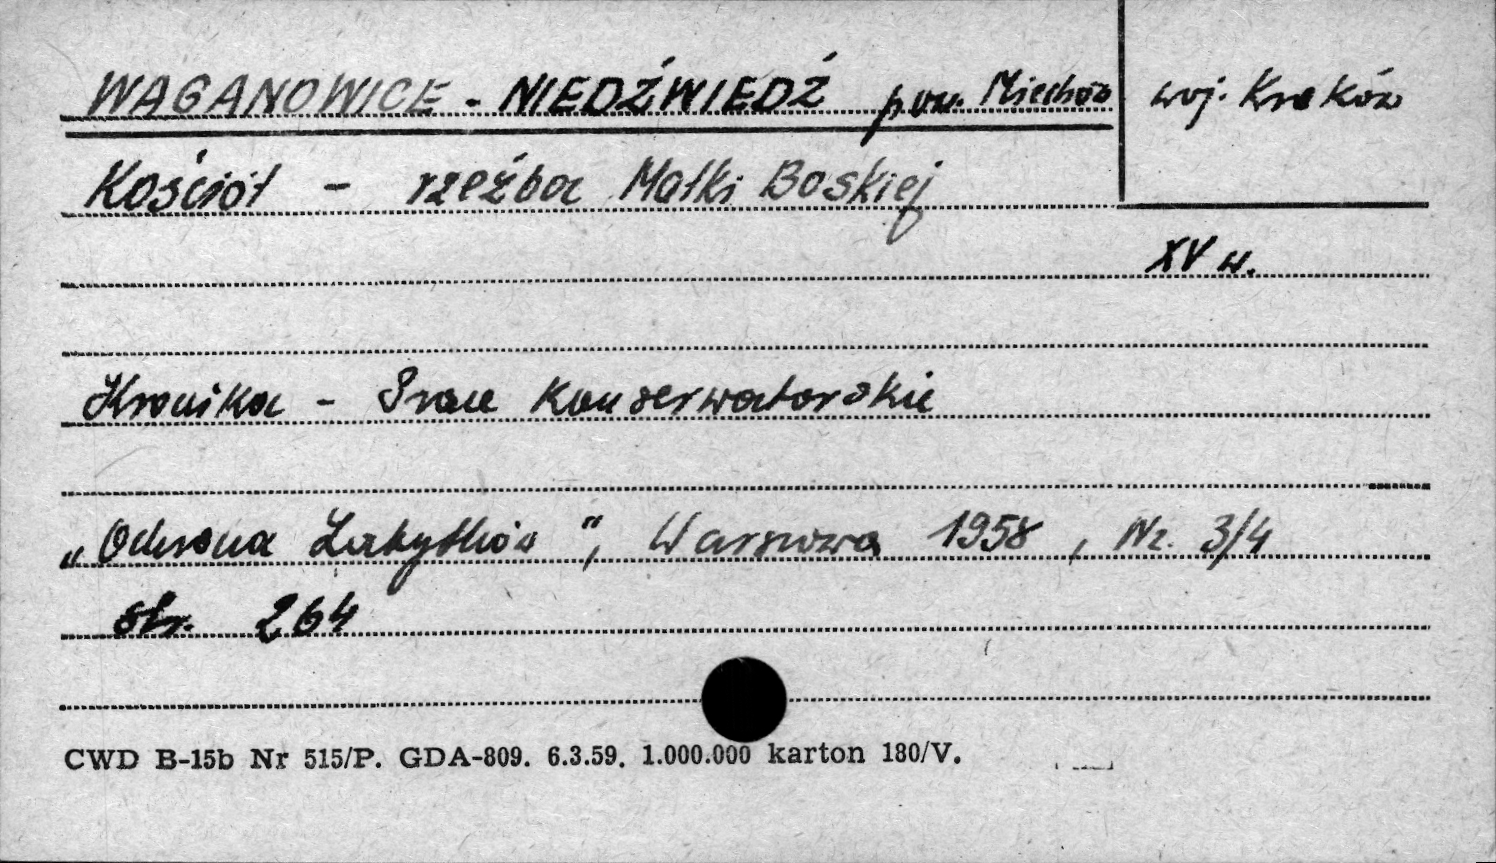 WAGANOWICE - NIEDŹWIEDŹ pow. Miechów
woj. Kraków
Kościół - rzeźba Matki Boskiej
XV w.
Kronika - Prace Konserwatorskie
„Ochrona Zabytków“, Warszawa 1958, Nr. 3/4
str. 264
CWD B-15b Nr 515/P. GDA-809. 6.3.59. 1.000.000 karton 180/V.